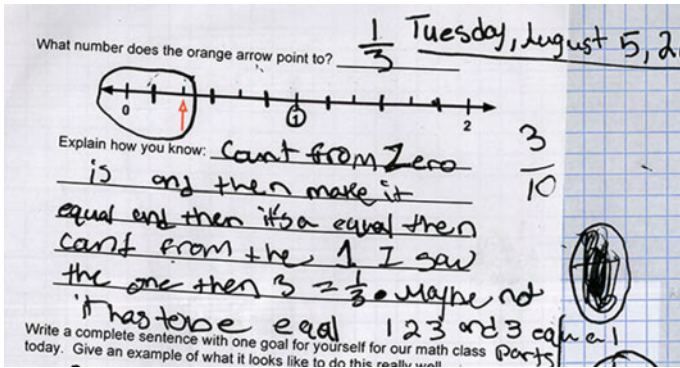 1/3 Tuesday, August 5, 2
What number does the orange arrow point to?
0 1 2
3/10
Explain how you know: Count from Zero
is and then make it
equal and then it's a equal then
cant from the 1 I saw
the one then 3 = 1/3. Maybe not
it has to be eqal 1 2 3 and 3 equal
parts
Write a complete sentence with one goal for yourself for our math class
today. Give an example of what it looks like to do this really well.